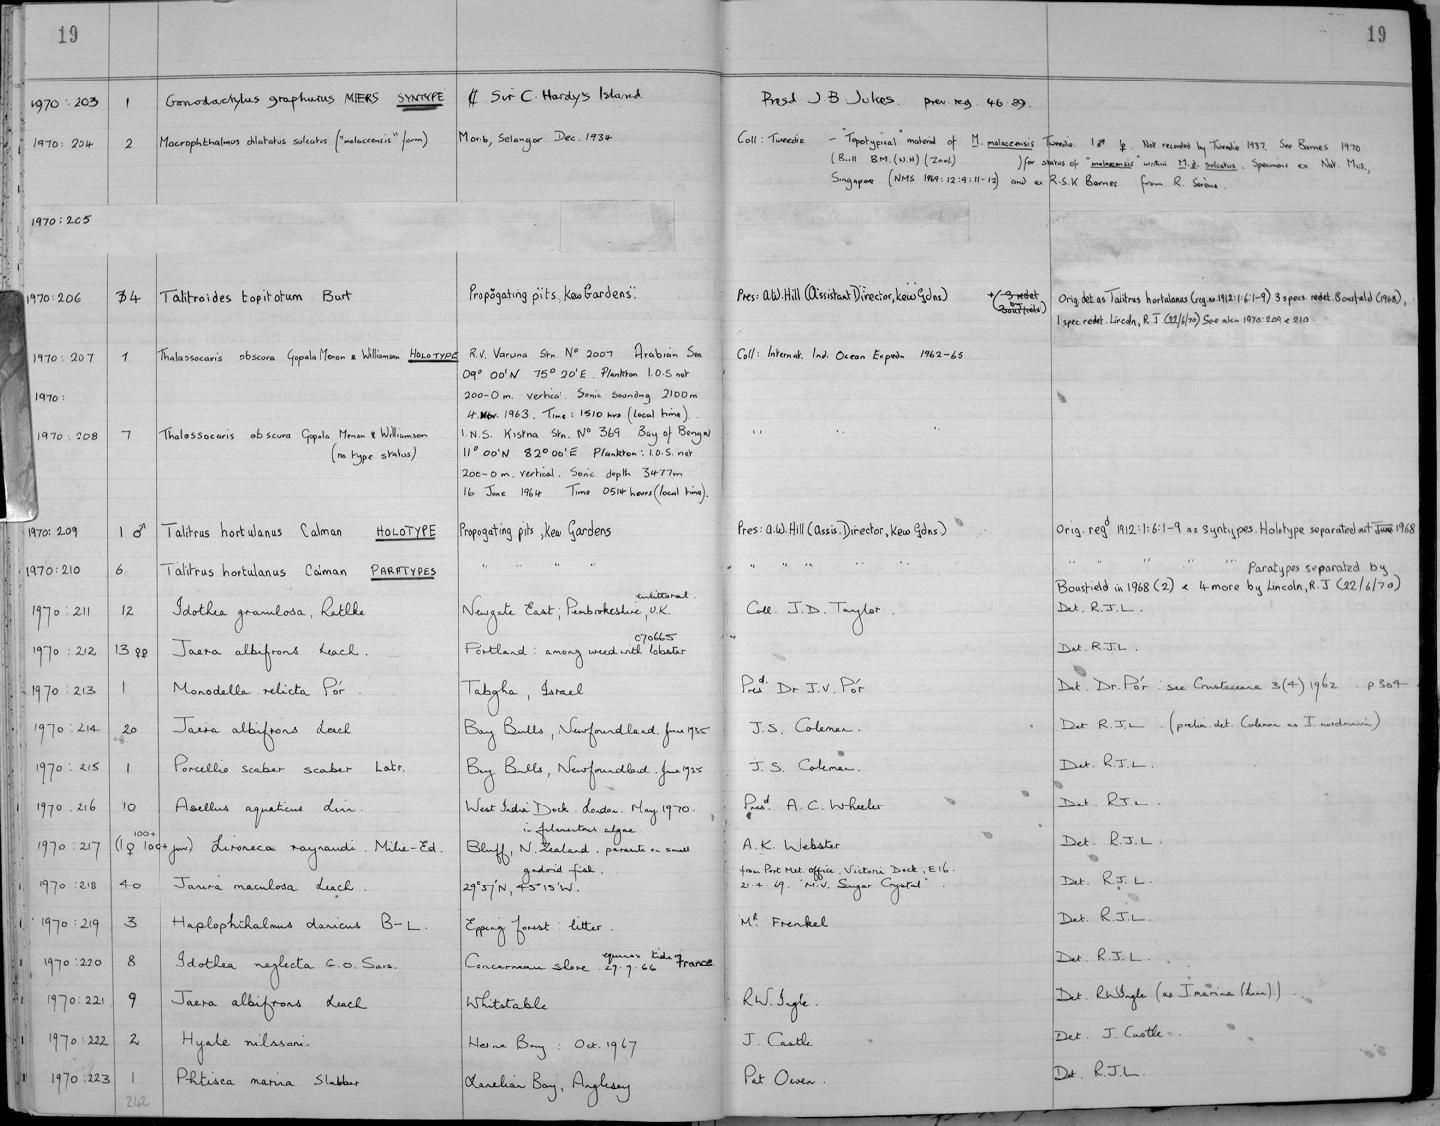 19
19
1970:203 1 Gonodactylus graphurus MIERS SYNTYPE ₵ Sir C. Hardy's Island Presd J B Jukes. prev. reg. 46.89.
1970:204 2 Macrophthalmus dilatatus sulcatus ("malaccensis" form) Morib, Selangor Dec. 1934 Coll: Tweedie - "Topotypical" material of M. malaccensis Tweedie. 1♂ ♀. Not recorded by Tweedie 1937. See Barnes 1970
(Bull BM.(N.H) (Zool) ) for status of "malaccensis" within M. d. sulcatus. Specimens ex Nat. Mus.,
Singapore (NMS 1969:12:9:11-12) and ex R.S.K Barnes from R. Serène.
1970:205
1970:206 4 Talitroides topitotum Burt Propogating pits, Kew Gardens. Pres: A.W. Hill (Assistant Director, Kew Gdns) +(3 redet Bousfield) Orig. det as Talitrus hortulanus (reg. no. 1912:1:6:1-9) 3 specs. redet. Bousfield (1968),
1 spec. redet. Lincoln, R J (22/6/70) See also 1970:209 & 210
1970:207 1 Thalassocaris obscura Gopala Menon & Williamson HOLOTYPE R.V. Varuna Stn. Nº 2007 Arabian Sea Coll: Internat. Ind. Ocean Expedn 1962-65
09° 00'N 75° 20'E. Plankton I.O.S net
1970: 200-0 m. vertical. Sonic sounding 2100m
4 Nov. 1963. Time: 1510 hrs (local time).
1970:208 7 Thalassocaris obscura Gopala Menon & Williamson I.N.S. Kistna Stn. Nº 369 Bay of Bengal " " "
(no type status) 11° 00'N 82° 00'E Plankton: I.O.S. net
200-0 m. vertical. Sonic depth 3477m
16 June 1964 Time 0514 hours (local time).
1970:209 1 ♂ Talitrus hortulanus Calman HOLOTYPE Propogating pits, Kew Gardens Pres: A.W. Hill (Assis. Director, Kew Gdns.) Orig. regd 1912:1:6:1-9 as syntypes. Holotype separated out June 1968
1970:210 6 Talitrus hortulanus Calman PARATYPES " " " " " " " " " " " " " " Paratypes separated by
Bousfield in 1968 (2) & 4 more by Lincoln, R.J (22/6/70)
1970:211 12 Idothea granulosa, Rathke Newgate East, Pembrokeshire, U.K. eulittoral. Coll. J.D. Taylor. Det. R.J.L.
1970:212 13 ♀♀ Jaera albifrons Leach. Portland: among weed with lobster 070665 Det. R.J.L.
1970:213 1 Monodella relicta Pór. Tabgha, Israel Presd. Dr J.V. Pór Det. Dr. Pór: see Crustaceana 3(4) 1962 p 304-
1970:214 20 Jaera albifrons Leach Bay Bulls, Newfoundland. June 1935 J.S. Coleman. Det R.J.L. (prelim. det. Colman as J. nordmanni)
1970:215 1 Porcellio scaber scaber Latr. Bay Bulls, Newfoundland. June 1935 J.S. Coleman. Det. R.J.L.
1970:216 10 Asellus aquaticus Lin. West India Dock. London. May 1970. in filamentous algae. Presd. A.C. Wheeler Det. R.J.L.
1970:217 (1♀ 100+ juv) 100+ Lironeca raynaudi. Milne-Ed. Bluff, N. Zealand. parasite on small gadoid fish. A.K. Webster Det. R.J.L.
1970:218 40 Janira maculosa Leach. 29°57'N, 45°15'W. from Port Met. office, Victoria Dock, E16.
21.4.69. "M.V. Sugar Crystal". Det. R.J.L.
1970:219 3 Haplophthalmus danicus B-L. Epping forest: litter. Mr Frenkel Det. R.J.L.
1970:220 8 Idothea neglecta G.O. Sars. Concarneau shore. equinox tide 29.9.66 France. Det. R.J.L.
1970:221 9 Jaera albifrons Leach Whitstable R.W. Ingle. Det. RW Ingle (as J. marina (Linn).)
1970:222 2 Hyale nilssoni. Herne Bay: Oct. 1967 J. Castle Det. J. Castle.
1970:223 1 Phtisca marina Slabber Lanelian Bay, Anglesey Pat Owen. Det. R.J.L.
242